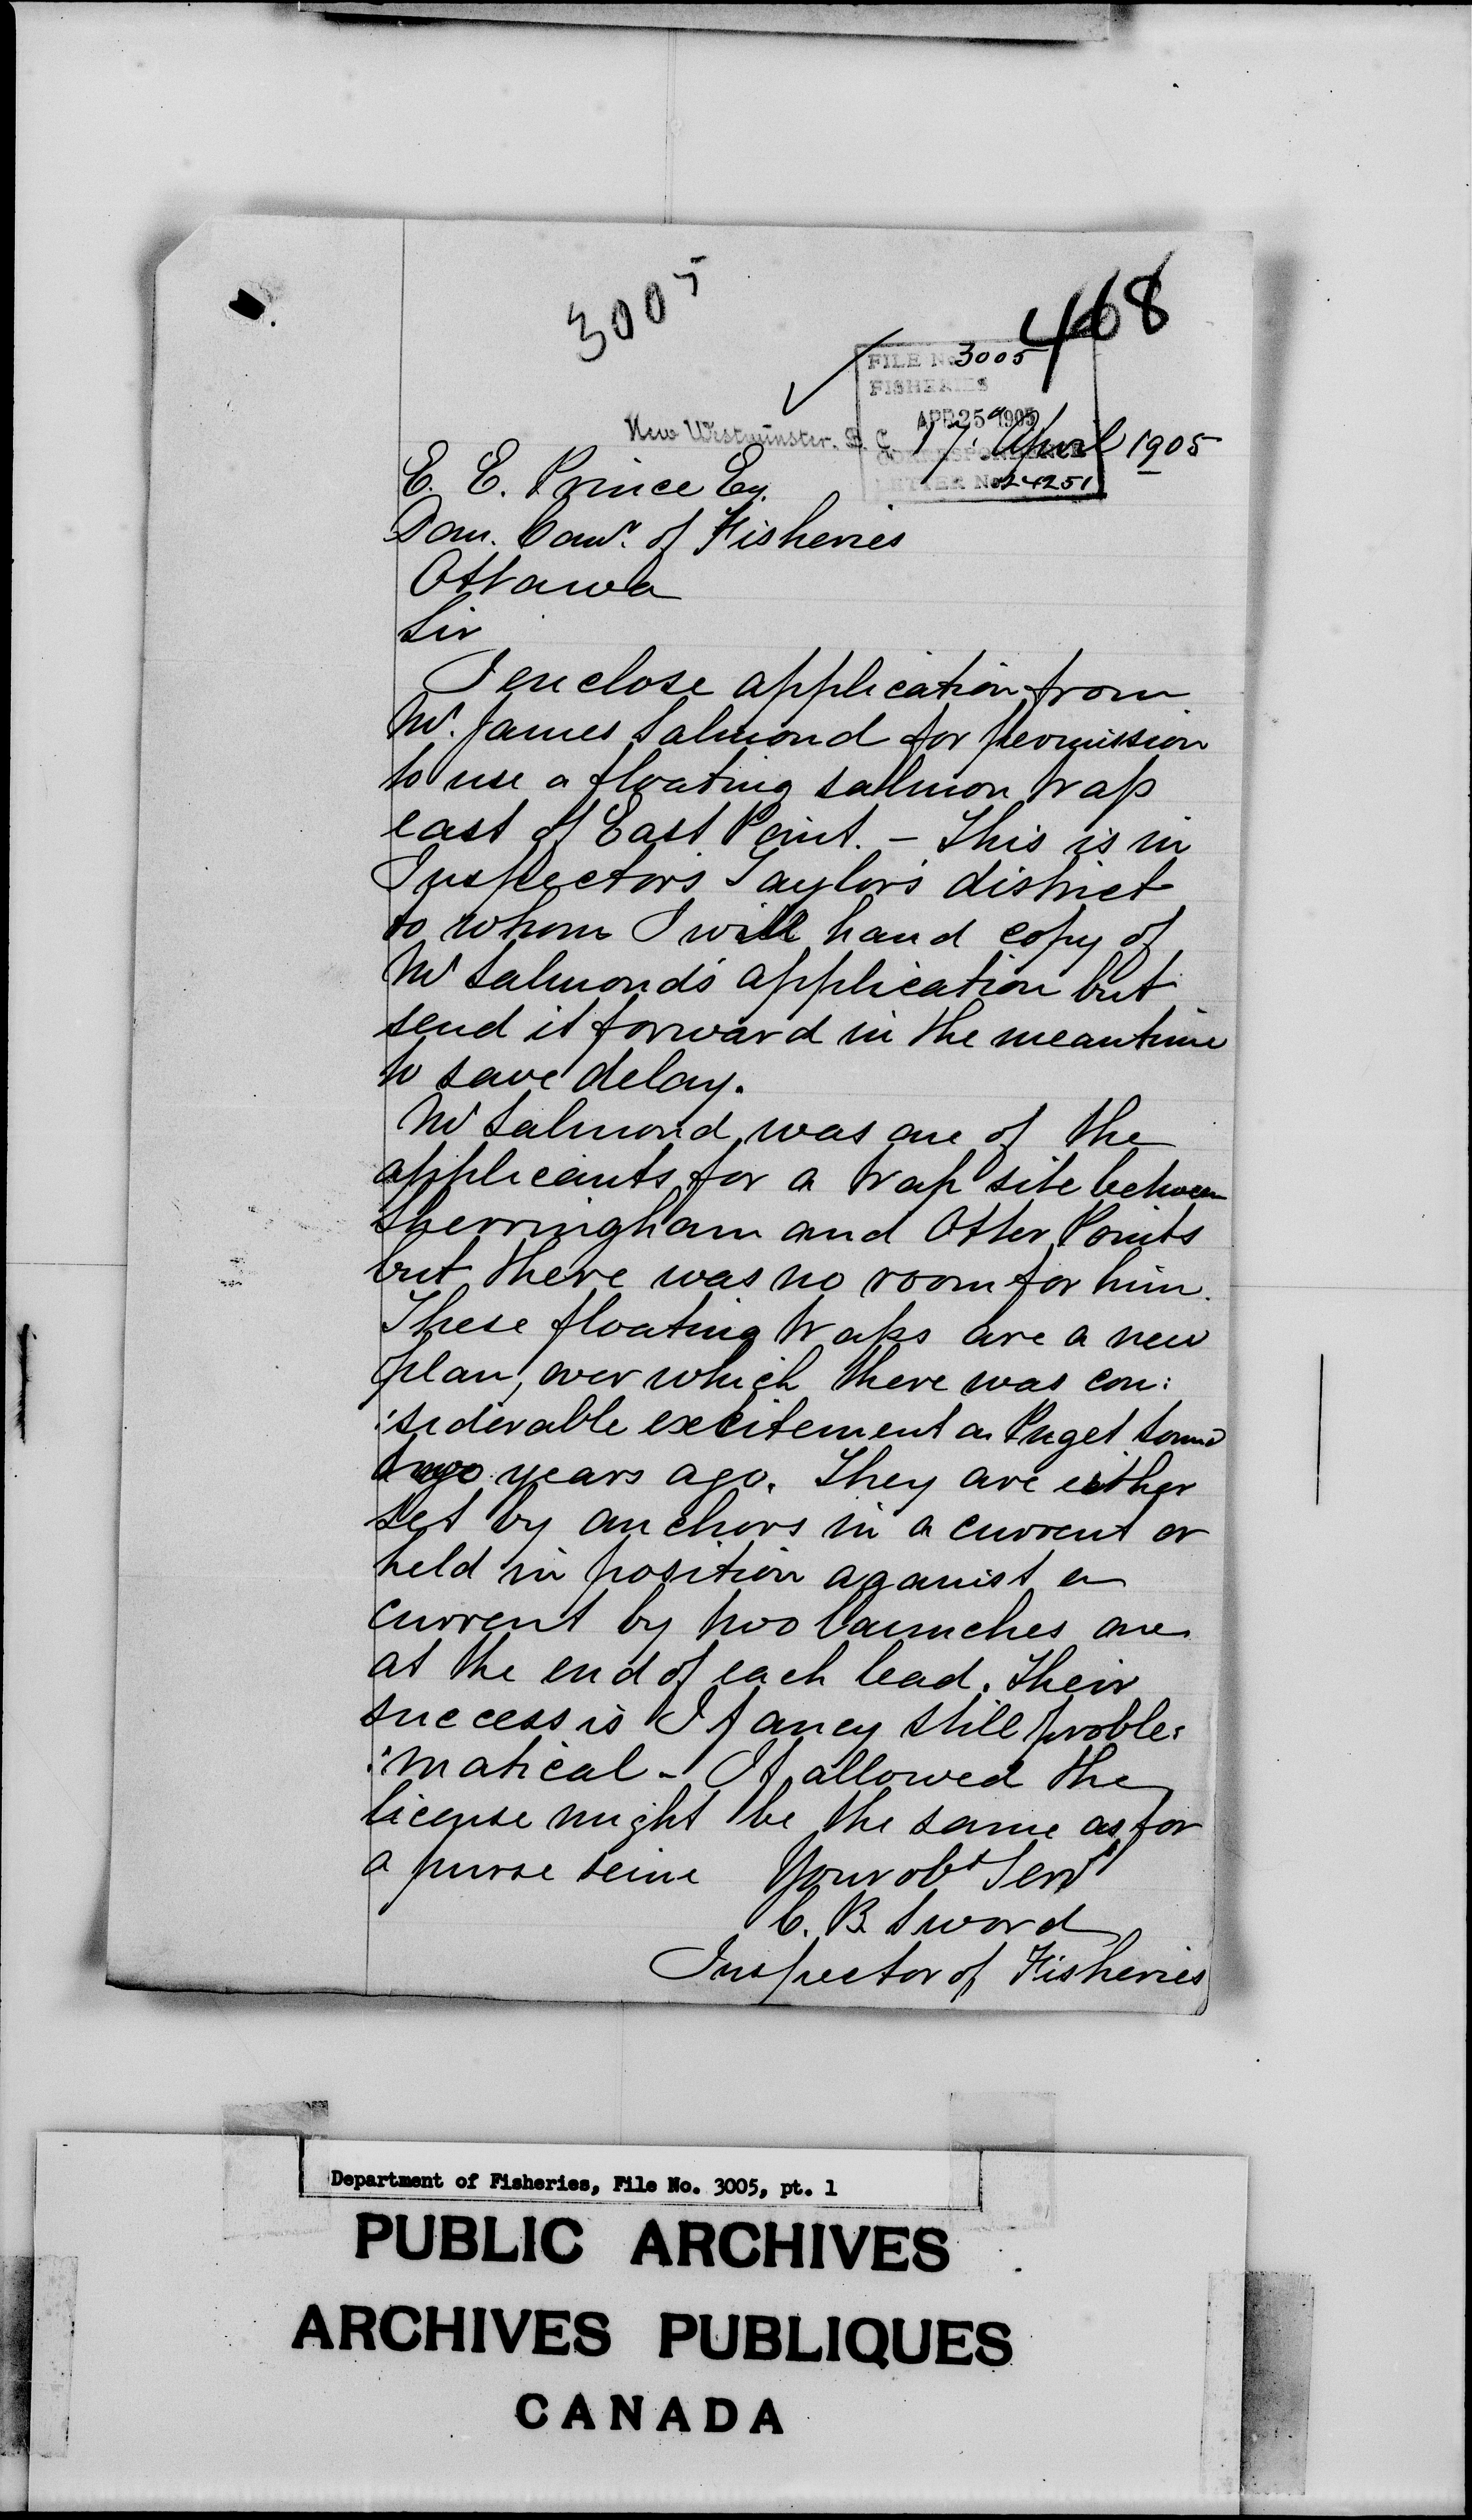 3005
468
FILE No 3005
FISHERIES
APR 25 1905
New Westminster, B. C. 17. April 1905
CORRESPONDENCE
LETTER No 24251
E. E. Prince Esq.
Dom. Comr. of Fisheries
Ottawa
Sir
I enclose application from
Mr. James Salmond for permission
to use a floating salmon trap
east of East Point. - This is in
Inspectors Taylor's district
to whom I will hand copy of
Mr Salmond's application but
send it forward in the meantime
to save delay.
Mr Salmond was one of the
applicants for a trap site between
Sherringham and Otter Points
but there was no room for him.
These floating traps are a new
plan, over which there was con:
:siderable excitement on Puget Sound
two years ago. They are either
set by anchors in a current or
held in position against a
current by two launches one
at the end of each lead. Their
success is I fancy still proble:
:matical - If allowed the
license might be the same as for
a purse seine Your obt Servt
C. B. Sword
Inspector of Fisheries
Department of Fisheries, File No. 3005, pt. 1
PUBLIC ARCHIVES
ARCHIVES PUBLIQUES
CANADA